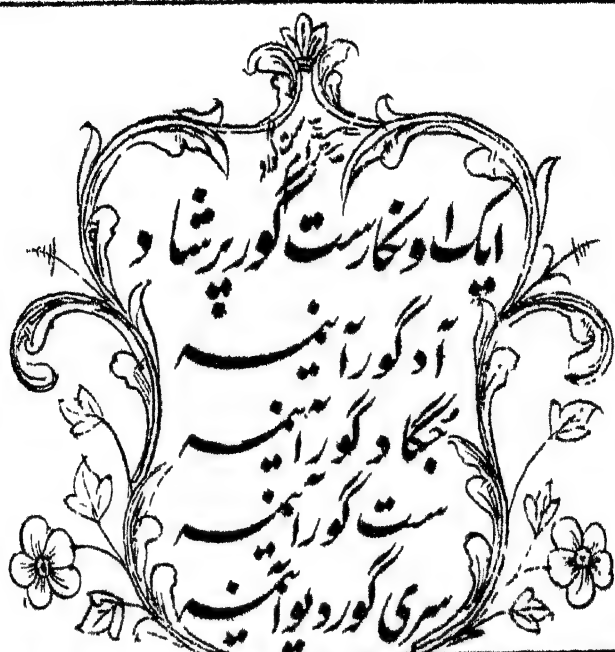 ایک اونکار ست گور پرشاد
آد گور آئینمہ
جگاد گور آئینمہ
ست گور آئینمہ
سری گوردیو آئینمہ